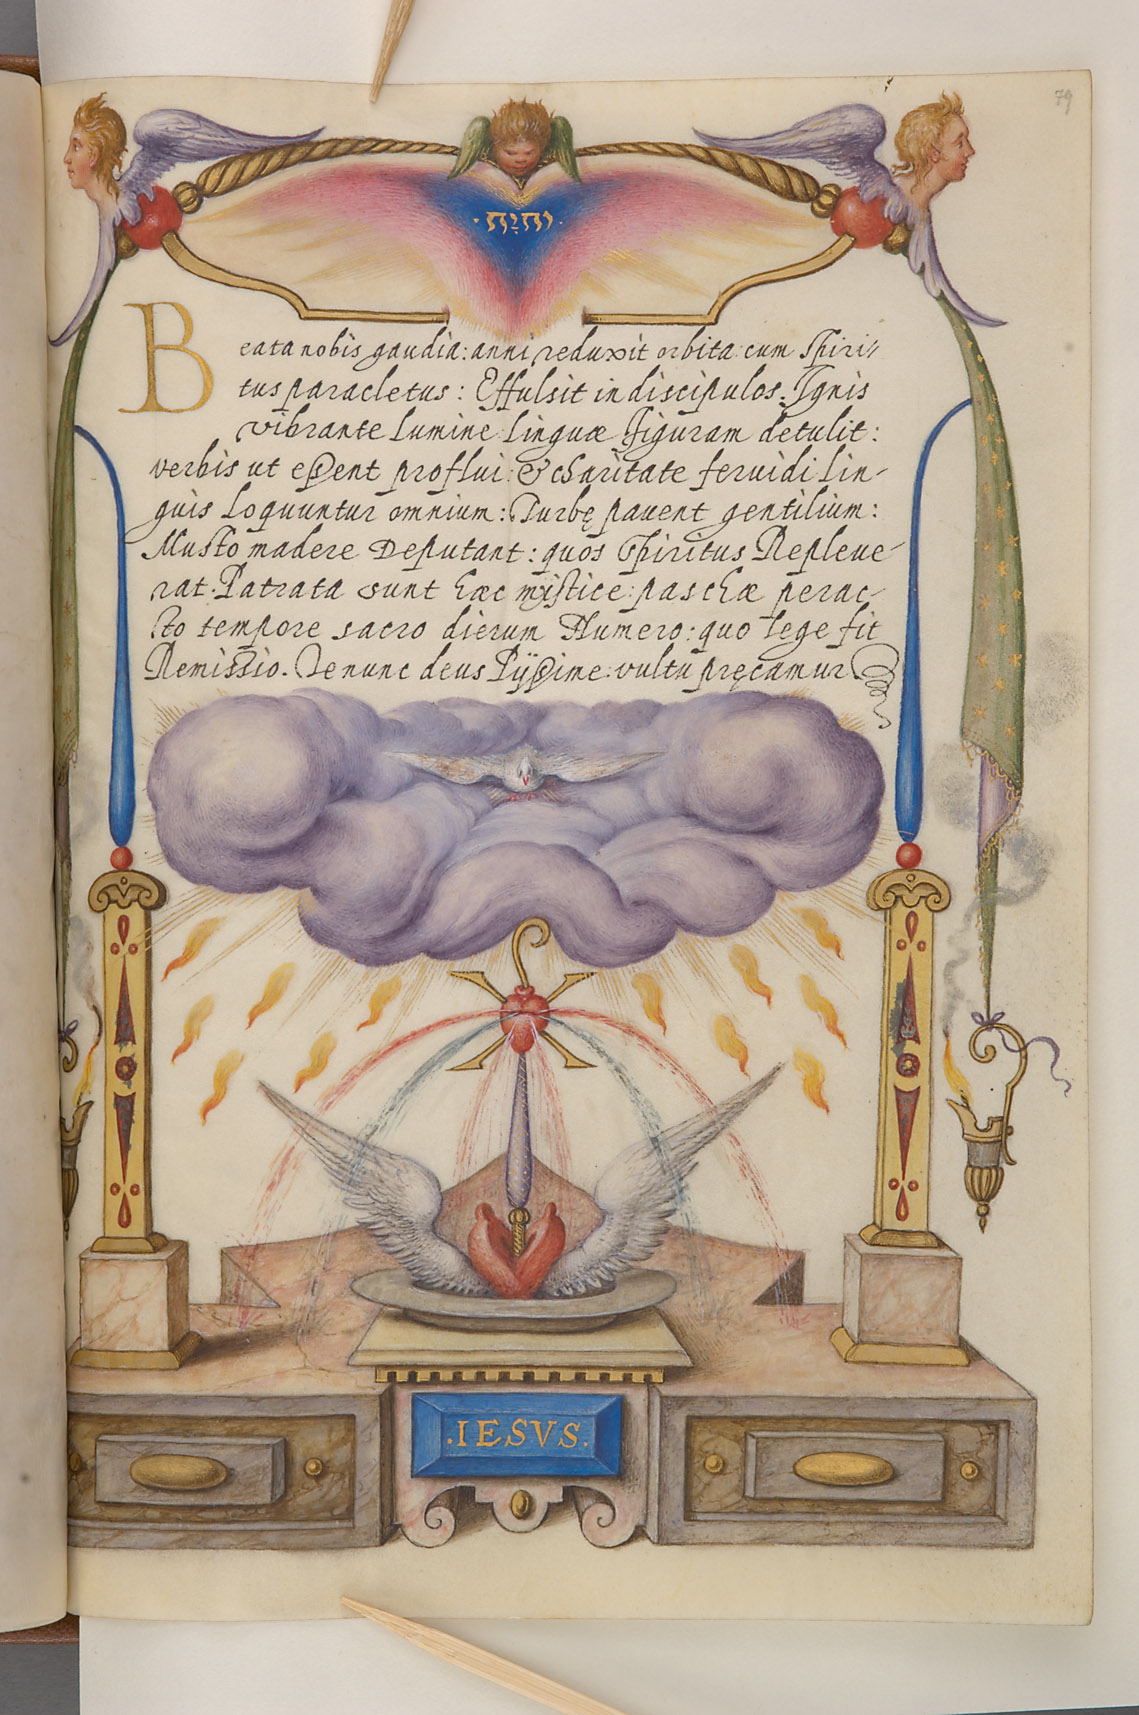 79
·יהוה·
Beata nobis gaudia: anni reduxit orbita: cum Spiri-
tus paracletus: Effulsit in discipulos. Ignis
vibrante Lumine Linguæ figuram detulit:
verbis ut eßent proflui: & charitate feruidi Lin-
guis Loquuntur omnium: Turbę pauent gentilium:
Musto madere Deputant: quos Spiritus Repleue-
rat. Patrata sunt hæc mistice: paschæ perac-
to tempore sacro dierum Numero: quo Lege fit
Remissio. Te nunc deus Pijßime: vultu pręcamur
·IESVS·